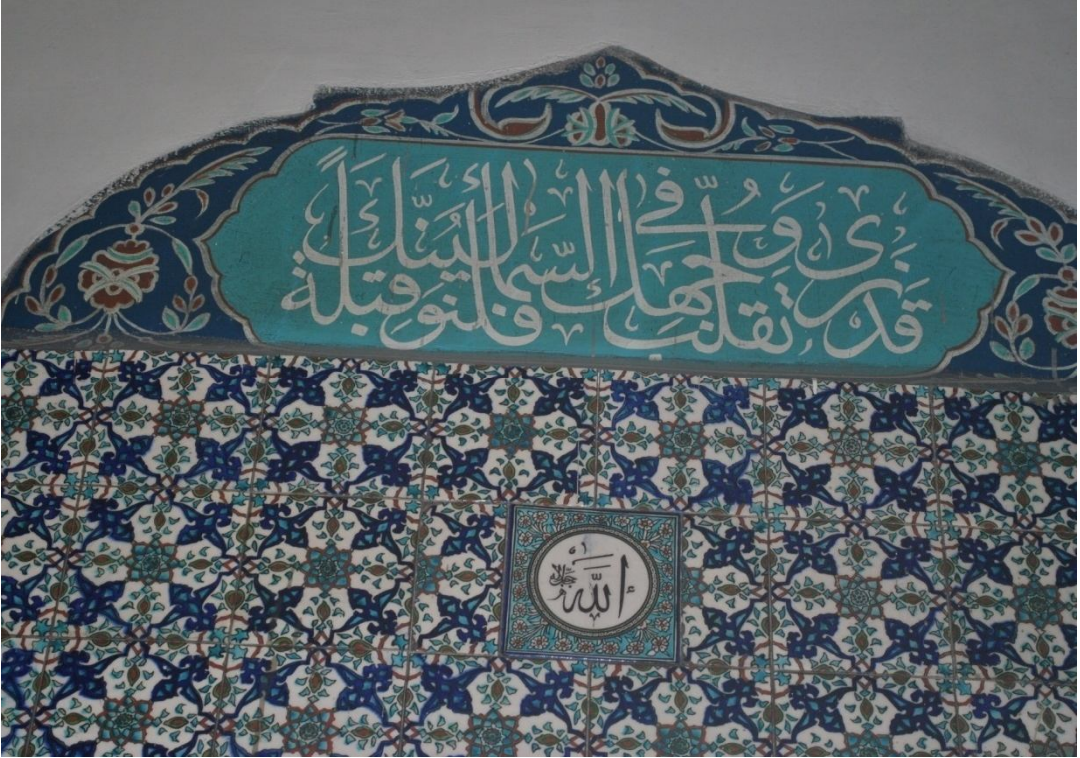 قد نرى تقلب وجهك في السماء فلنولينك قبلةً
الله جل جلاله